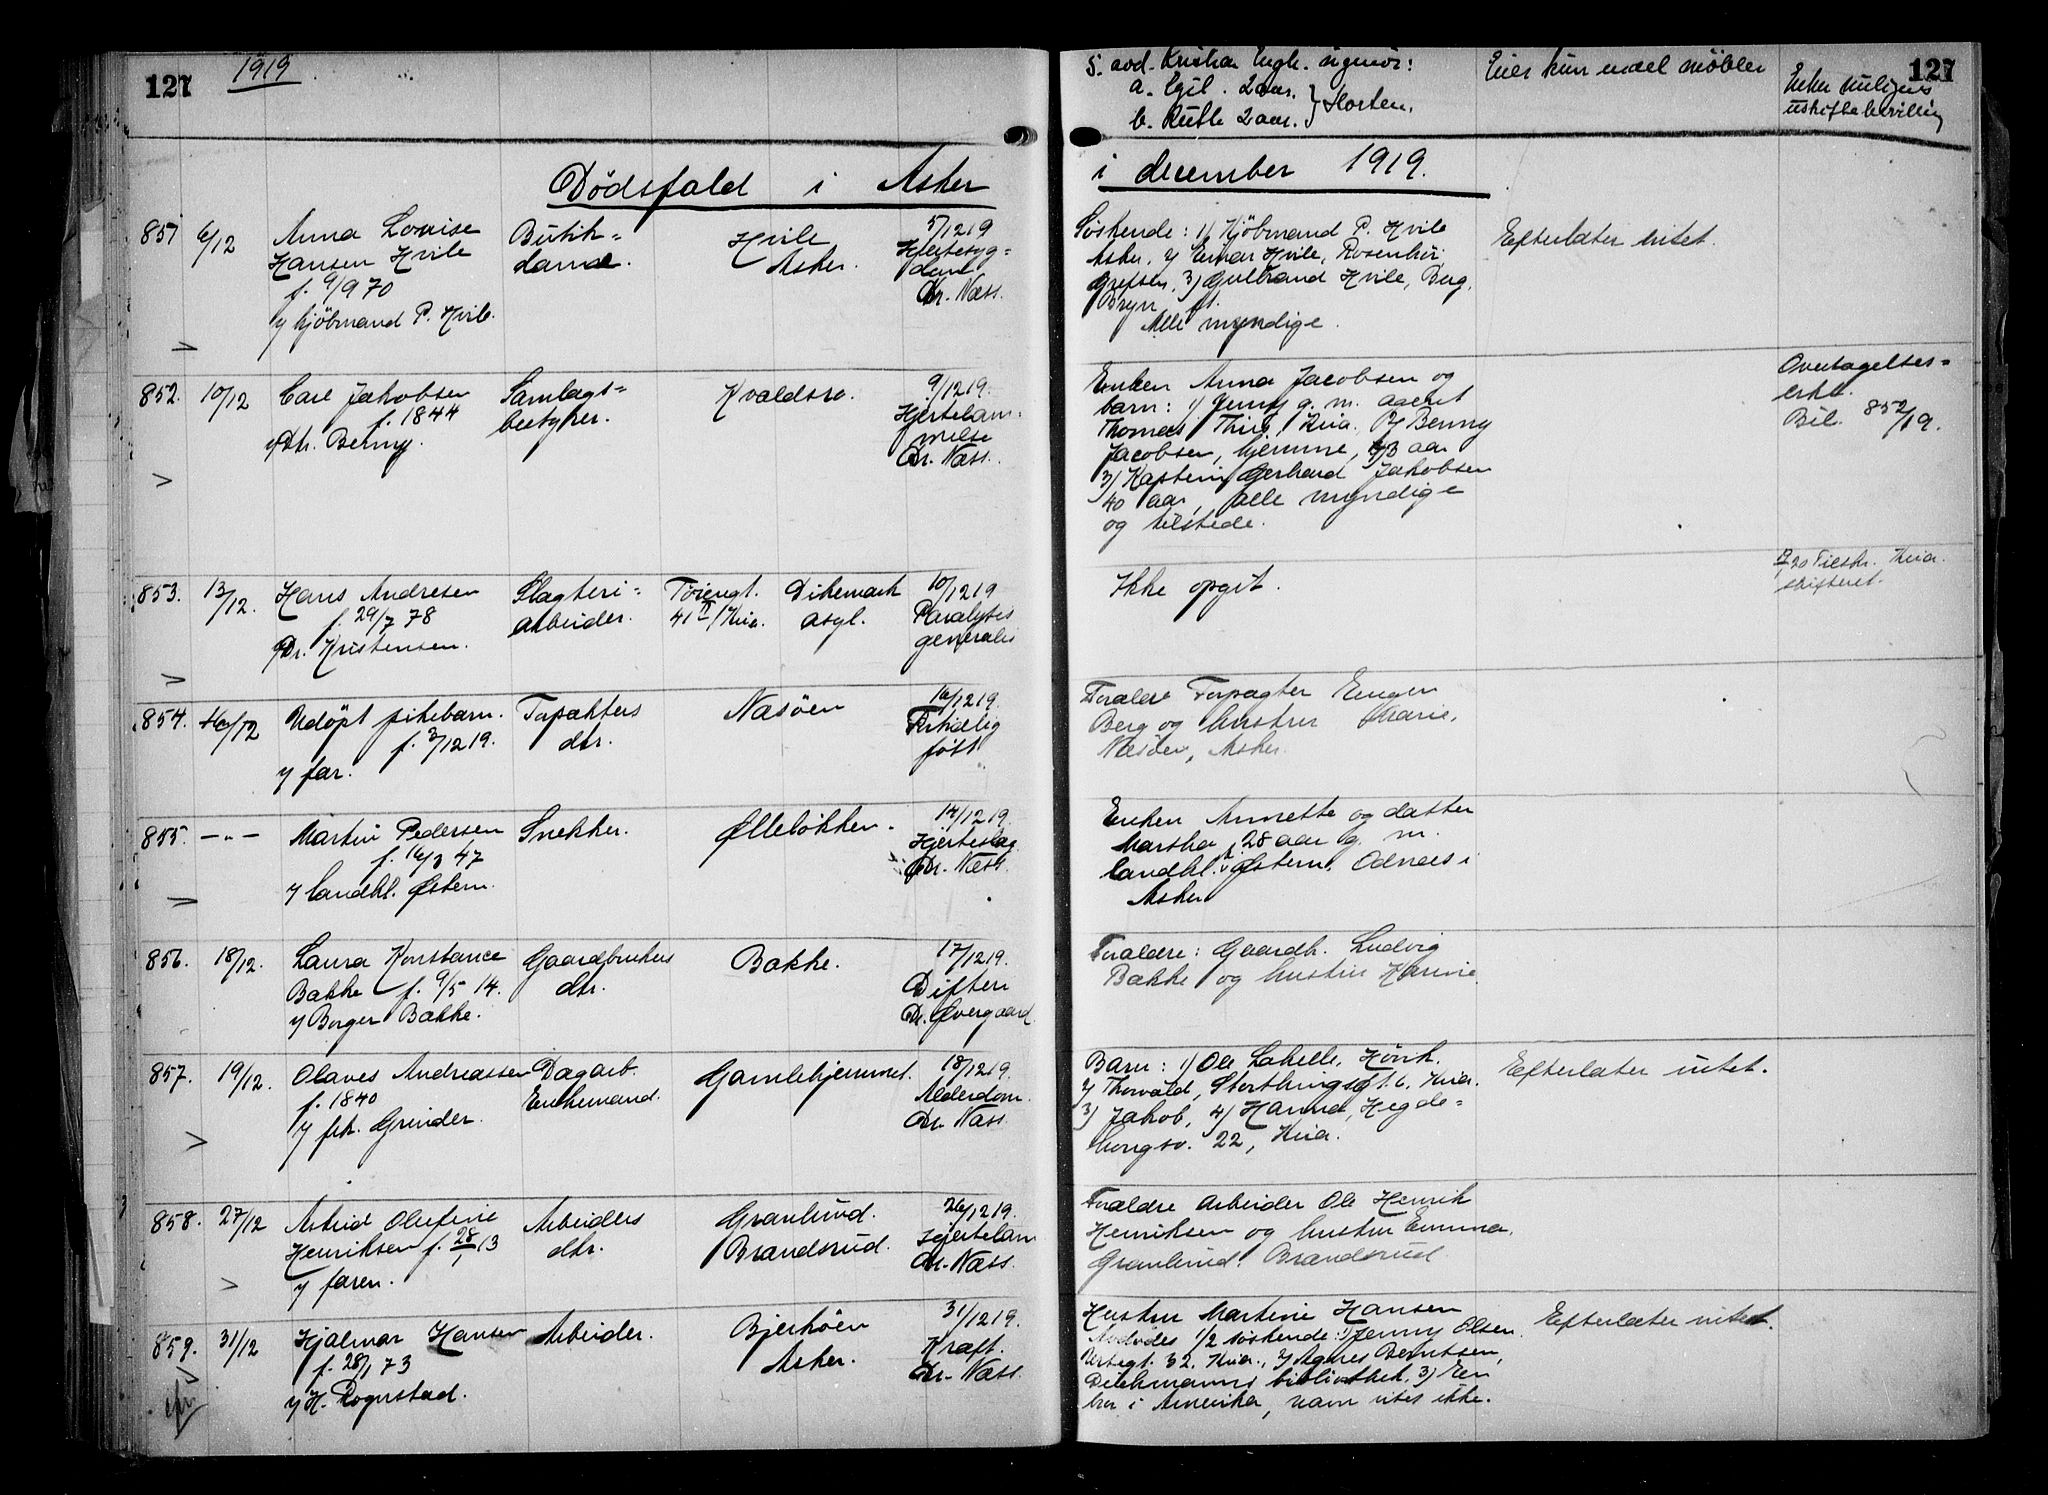 127
1919
5. avd. Kristian Engh. ugmor:
a. Egil. 2 aar.
b. Ruth 2 aar. } Horten.
Eier kun endel møbler
127
Enken
uskiftebevilling
Dødsfald i Asker
i december 1919.
851 6/12 Anna Lovise
Hansen Hvile
f. 9/9 70
v/ kjøbmand P. Hvile.
Butik=
dame.
Hvile
Asker.
5/12 19
Hjertesyg=
dom
Dr. Næss.
Søskende: 1) Kjöbmand P. Hvile
Asker, 2) Einar Hvile,
Grefsen, 3) Gulbrand Hvile, Berg,
Bryn st.
Alle myndige.
Efterlater intet.
852. 10/12 Carl Jakobsen
f. 1844
v/ Dtr. Benny.
Samlags=
bestyrer.
Kvaldsro.
9/12 19.
Hjertelam=
melse
Dr. Næss.
Enken Anna Jacobsen og
barn: 1) Jenny g. m. agent
Thomas Kria. 2) Benny
Jacobsen, hjemme, 43 aar
3) Kaptein Gerhard Jakobsen
40 aar, alle myndige
og tilstede.
Overtagelses=
erkl.
Bil. 852/19.
853. 13/12. Hans Andresen
f. 29/7 78
v/ Dr. Kristensen.
Slagteri=
arbeider.
Tøiengt.
41 II, Kria.
Dikemark
asyl.
10/12 19
Paralysis
generalis
Ikke opgit.
Kria.
skifteret.
854. 16/12 Udøpt pikebarn.
f. 3/12 19.
v/ far.
Forpakters
dtr.
Nesöen
16/12 19.
Fortidlig
født
Forældre Forpagter Eugen
Berg og hustru Marie,
Nesöen, Asker.
855. — " — Martin Pedersen
f. 16/3 47
v/ landhl. Østern.
Snekker.
Ølleløkken.
14/12 19.
Hjerteslag
Dr. Næss.
Enken Annette og datter
Martha 28 aar g. m.
landhl. Østern, Odnæs i
Asker
856. 18/12. Laura Konstance
Bakke f. 9/5 14.
v/ Borger Bakke.
Gaardbrukers
dtr.
Bakke.
17/12 19.
Difteri
Dr. Øvergaard.
Forældre: Gaardb. Ludvig
Bakke og hustru Karine.
857. 19/12. Olaves Andreassen
f. 1840
v/ frk. Grinder.
Dagarb.
Enkemand.
Gamlehjemmet.
18/12 19.
Alderdom.
Dr. Næss.
Barn: 1) Ole Lahelle, Hönk.
2) Thorvald, Storthingsgt. 6, Kria.
3) Jakob, 4) Hanna, Hegde=
haugsv. 22, Kria.
Efterlater intet.
858. 27/12 Astrid Olufine
Henriksen f. 28/1 13
v/ faren.
Arbeiders
dtr.
Granlund.
Brandsrud.
26/12 19.
Hjertelam
Dr. Næss.
Forældre Arbeider Ole Henrik
Henriksen og hustru Emma,
Granlund, Brandsrud
859. 31/12 Hjalmar Hansen
f. 28/1 73
v/ H. Rognstad.
Arbeider.
Bjerkåsen
Asker.
31/12 19.
Kræft.
Dr. Næss.
Hustru Martine Hansen
Avdødes 1/2 søskende: 1) Jenny Olsen
32. Kria., 2) Agnes Berntsen,
Deichmanns bibliothek, 3) En
bror i Amerika, navn vites ikke.
Efterlater intet.